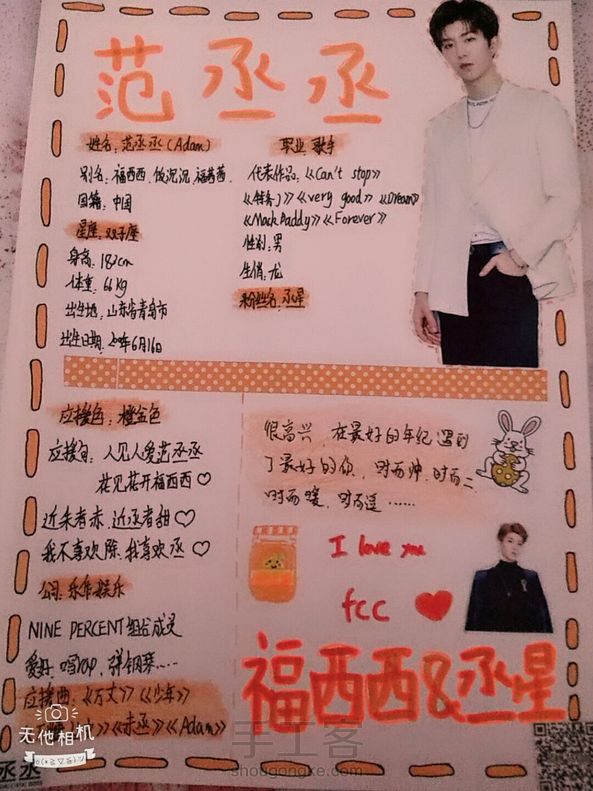 范丞丞
姓名:范丞丞(Adam)
别名:福西西、饭沉沉、福茜茜.
国籍:中国
星座:双子座
身高:183cm
体重:66kg
出生地:山东省青岛市
出生日期:2000年6月16日
职业:歌手
代表作品:《Can't stop》
《very good》《Dream》
《Mack Daddy》《Forever》
性别:男
生肖:龙
粉丝名:丞星
应援色:橙金色
应援句:人见人爱范丞丞
花见花开福西西♡
近朱者赤、近丞者甜♡
我不喜欢将就,我喜欢丞♡
公司:乐华娱乐
NINE PERCENT组合成员
爱好:唱rap、弹钢琴……
应援曲:《万丈》《少年》
《赤丞》《Adam》
很高兴 在最好的年纪遇到
了最好的你、时而帅、时而二、
时而暖、时而逗……
I love you
fcc
福西西&丞星
无他相机
手工客
shougongke.com
丞丞